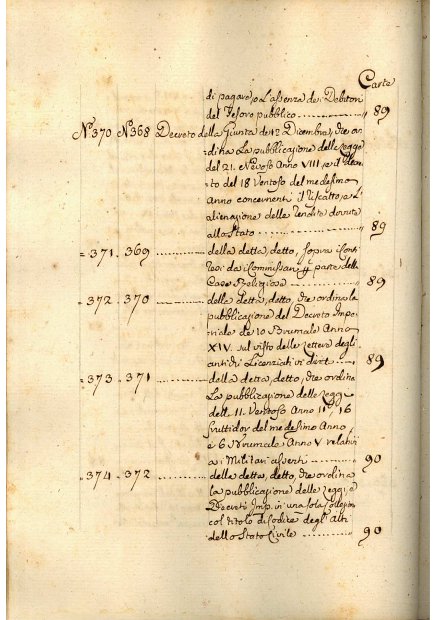 Carte
di pagare p l'assenza dei Debitori
del Tesoro pubblico ............ " 89
Nº 370 Nº 368 Decreto della Giunta de 12 Dicembre, che or-
dina La pubblicazione delle Legge
del 21. Nevoso Anno VIII, e il Decre-
to del 18 Ventoso del medesimo
Anno concernenti il riscatto, e L'
alienazione delle rendite dovute
allo Stato ............ " 89
= 371 . 369 ............ della detta, detto, sopra i Cont
da i Commissari p parte delle
Case Religiose ............ " 89
= 372 . 370 ............ della detta, detto, che ordina la
pubblicazione del Decreto Impe-
riale de 10 Brumale Anno
XIV. sul visto delle Lettere degli
antichi Licenziati in dirit ........ " 89
= 373 . 371 ............ della detta, detto, che ordina
La pubblicazione delle Leggi
dell' 11. Ventoso Anno II, 16
fruttidor del medesimo Anno
e 6 Brumale Anno V relativi
a i Militari assenti ............ " 90
= 374 . 372 ............ della detta, detto, che ordina
la pubblicazione delle Leggi, e
Decreti Imp. in una sola Collezion
col titolo di Codice degli Atti
dello Stato Civile ............ " 90